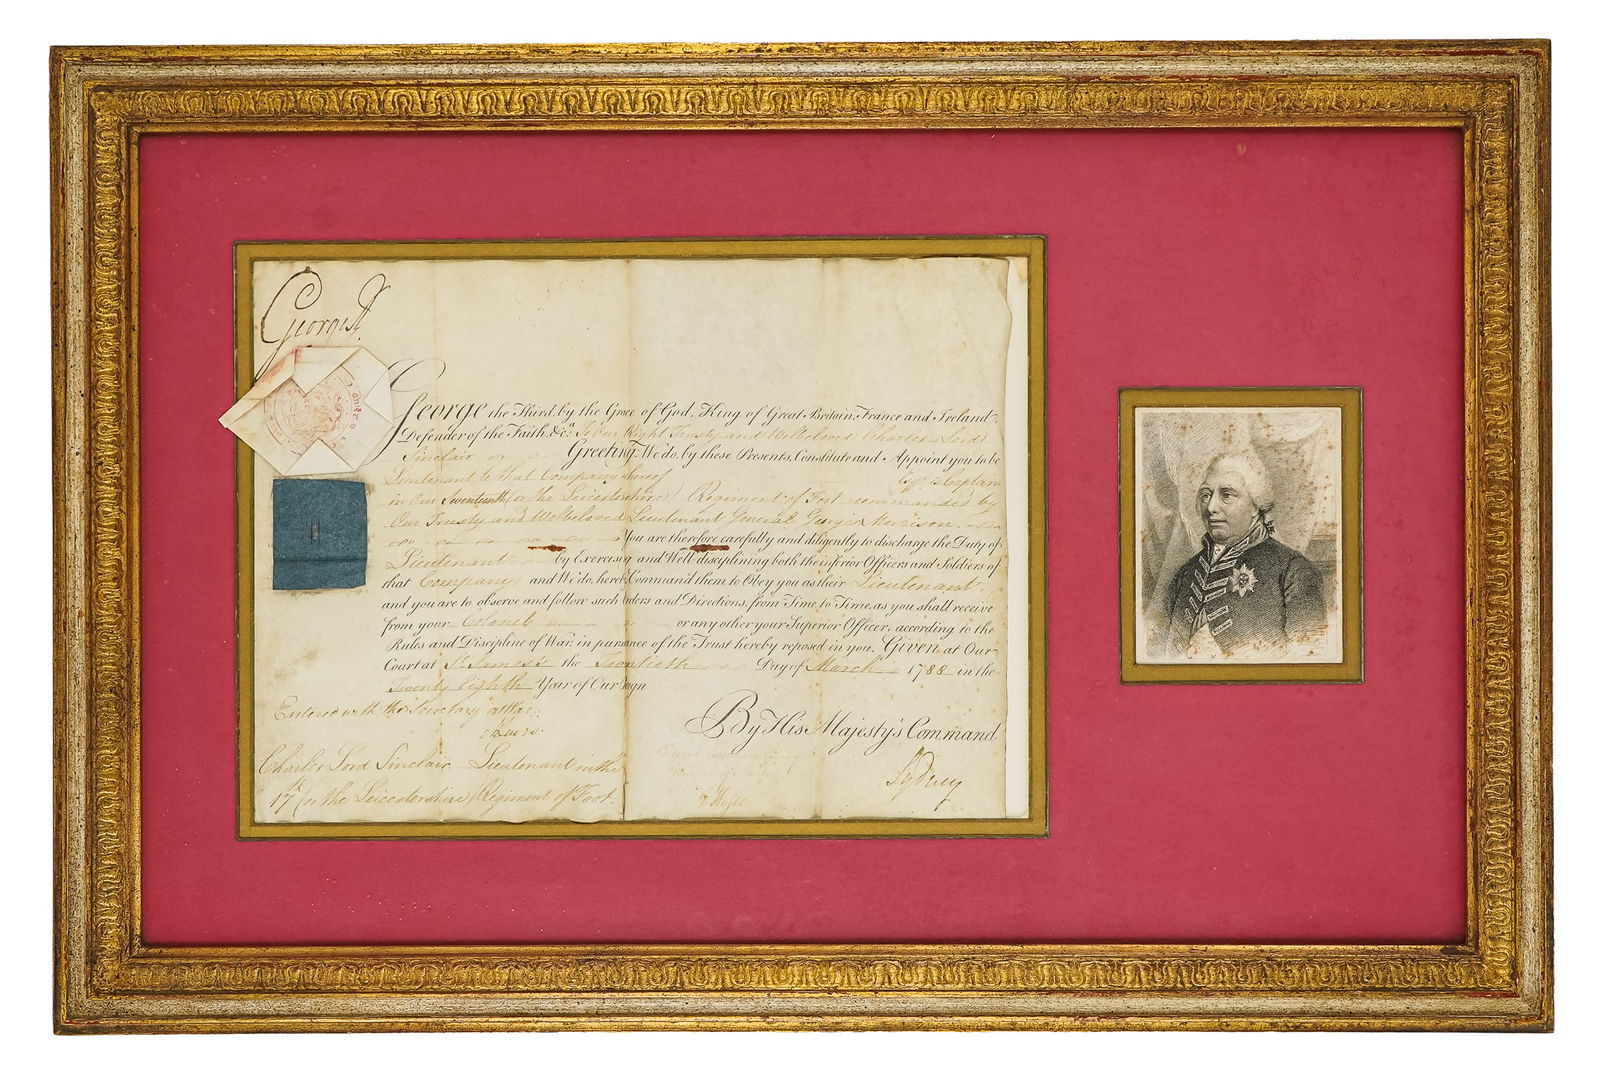 George R
George the Third, by the Grace of God, King of Great Britain, France and Ireland,
Defender of the Faith, &c.a To Our Right Trusty and Welbeloved Charles Lord
Sinclair Greeting: We do, by these Presents, Constitute and Appoint you to be
Lieutenant to that Company whereof Esqr. is Captain
in Our Seventeenth (or the Leicestershire) Regiment of Foot, commanded by
Our Trusty and Welbeloved Lieutenant General George Morrison.
You are therefore carefully and diligently to discharge the Duty of
Lieutenant by Exercising and Well disciplining both the inferior Officers and Soldiers of
that Company and We do, hereby Command them to Obey you as their Lieutenant
and you are to observe and follow such Orders and Directions, from Time to Time, as you shall receive
from your Colonel or any other your Superior Officer, according to the
Rules and Discipline of War, in pursuance of the Trust hereby reposed in you. Given at Our
Court at St. James's the Twentieth Day of March 1788 in the
Twenty Eighth Year of Our Reign
Entered with the Secretary at War
By His Majesty's Command
Charles Lord Sinclair Lieutenant in the
17th (or the Leicestershire) Regiment of Foot.
Sydney